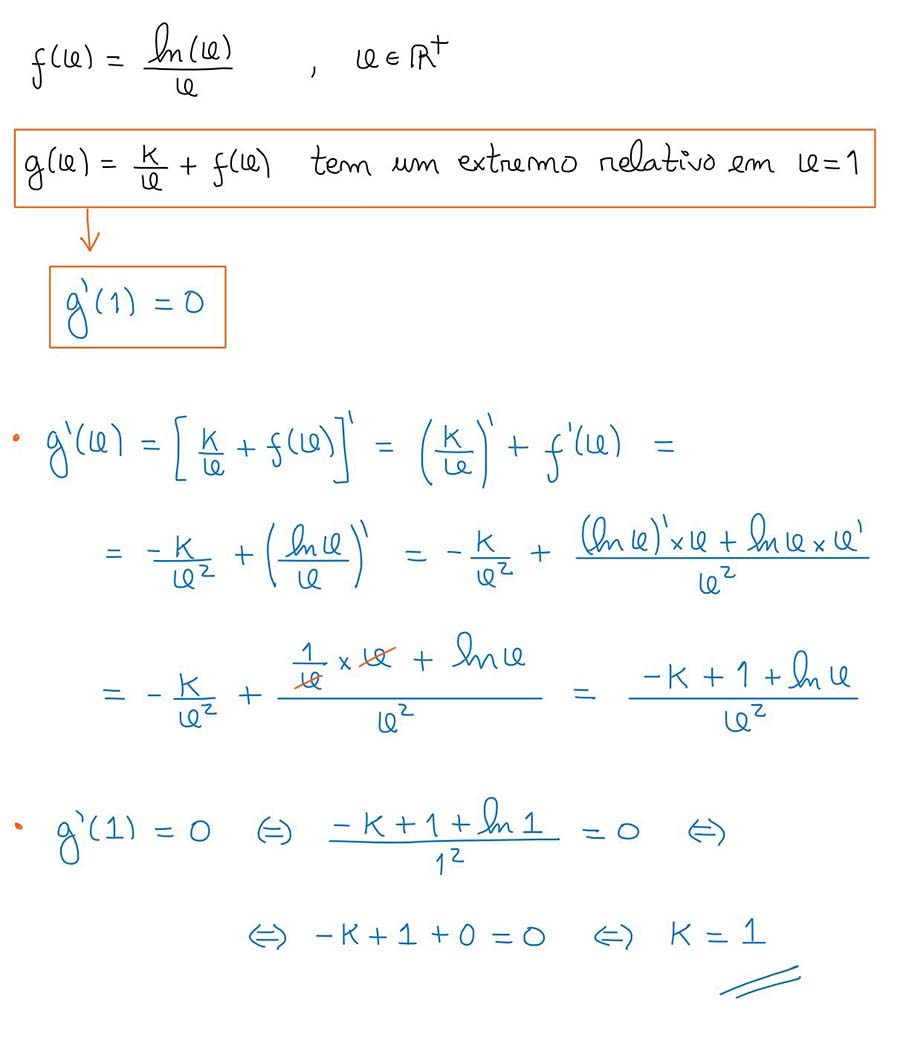 f(x) = ln(x)/x , x ∈ ℝ⁺
g(x) = k/x + f(x) tem um extremo relativo em x = 1
g'(1) = 0
• g'(x) = [k/x + f(x)]' = (k/x)' + f'(x) =
= -k/x² + (ln x/x)' = -k/x² + ((ln x)' × x + ln x × x')/x²
= -k/x² + (1/x × x + ln x)/x² = (-k + 1 + ln x)/x²
• g'(1) = 0 ⇔ (-k + 1 + ln 1)/1² = 0 ⇔
⇔ -k + 1 + 0 = 0 ⇔ k = 1